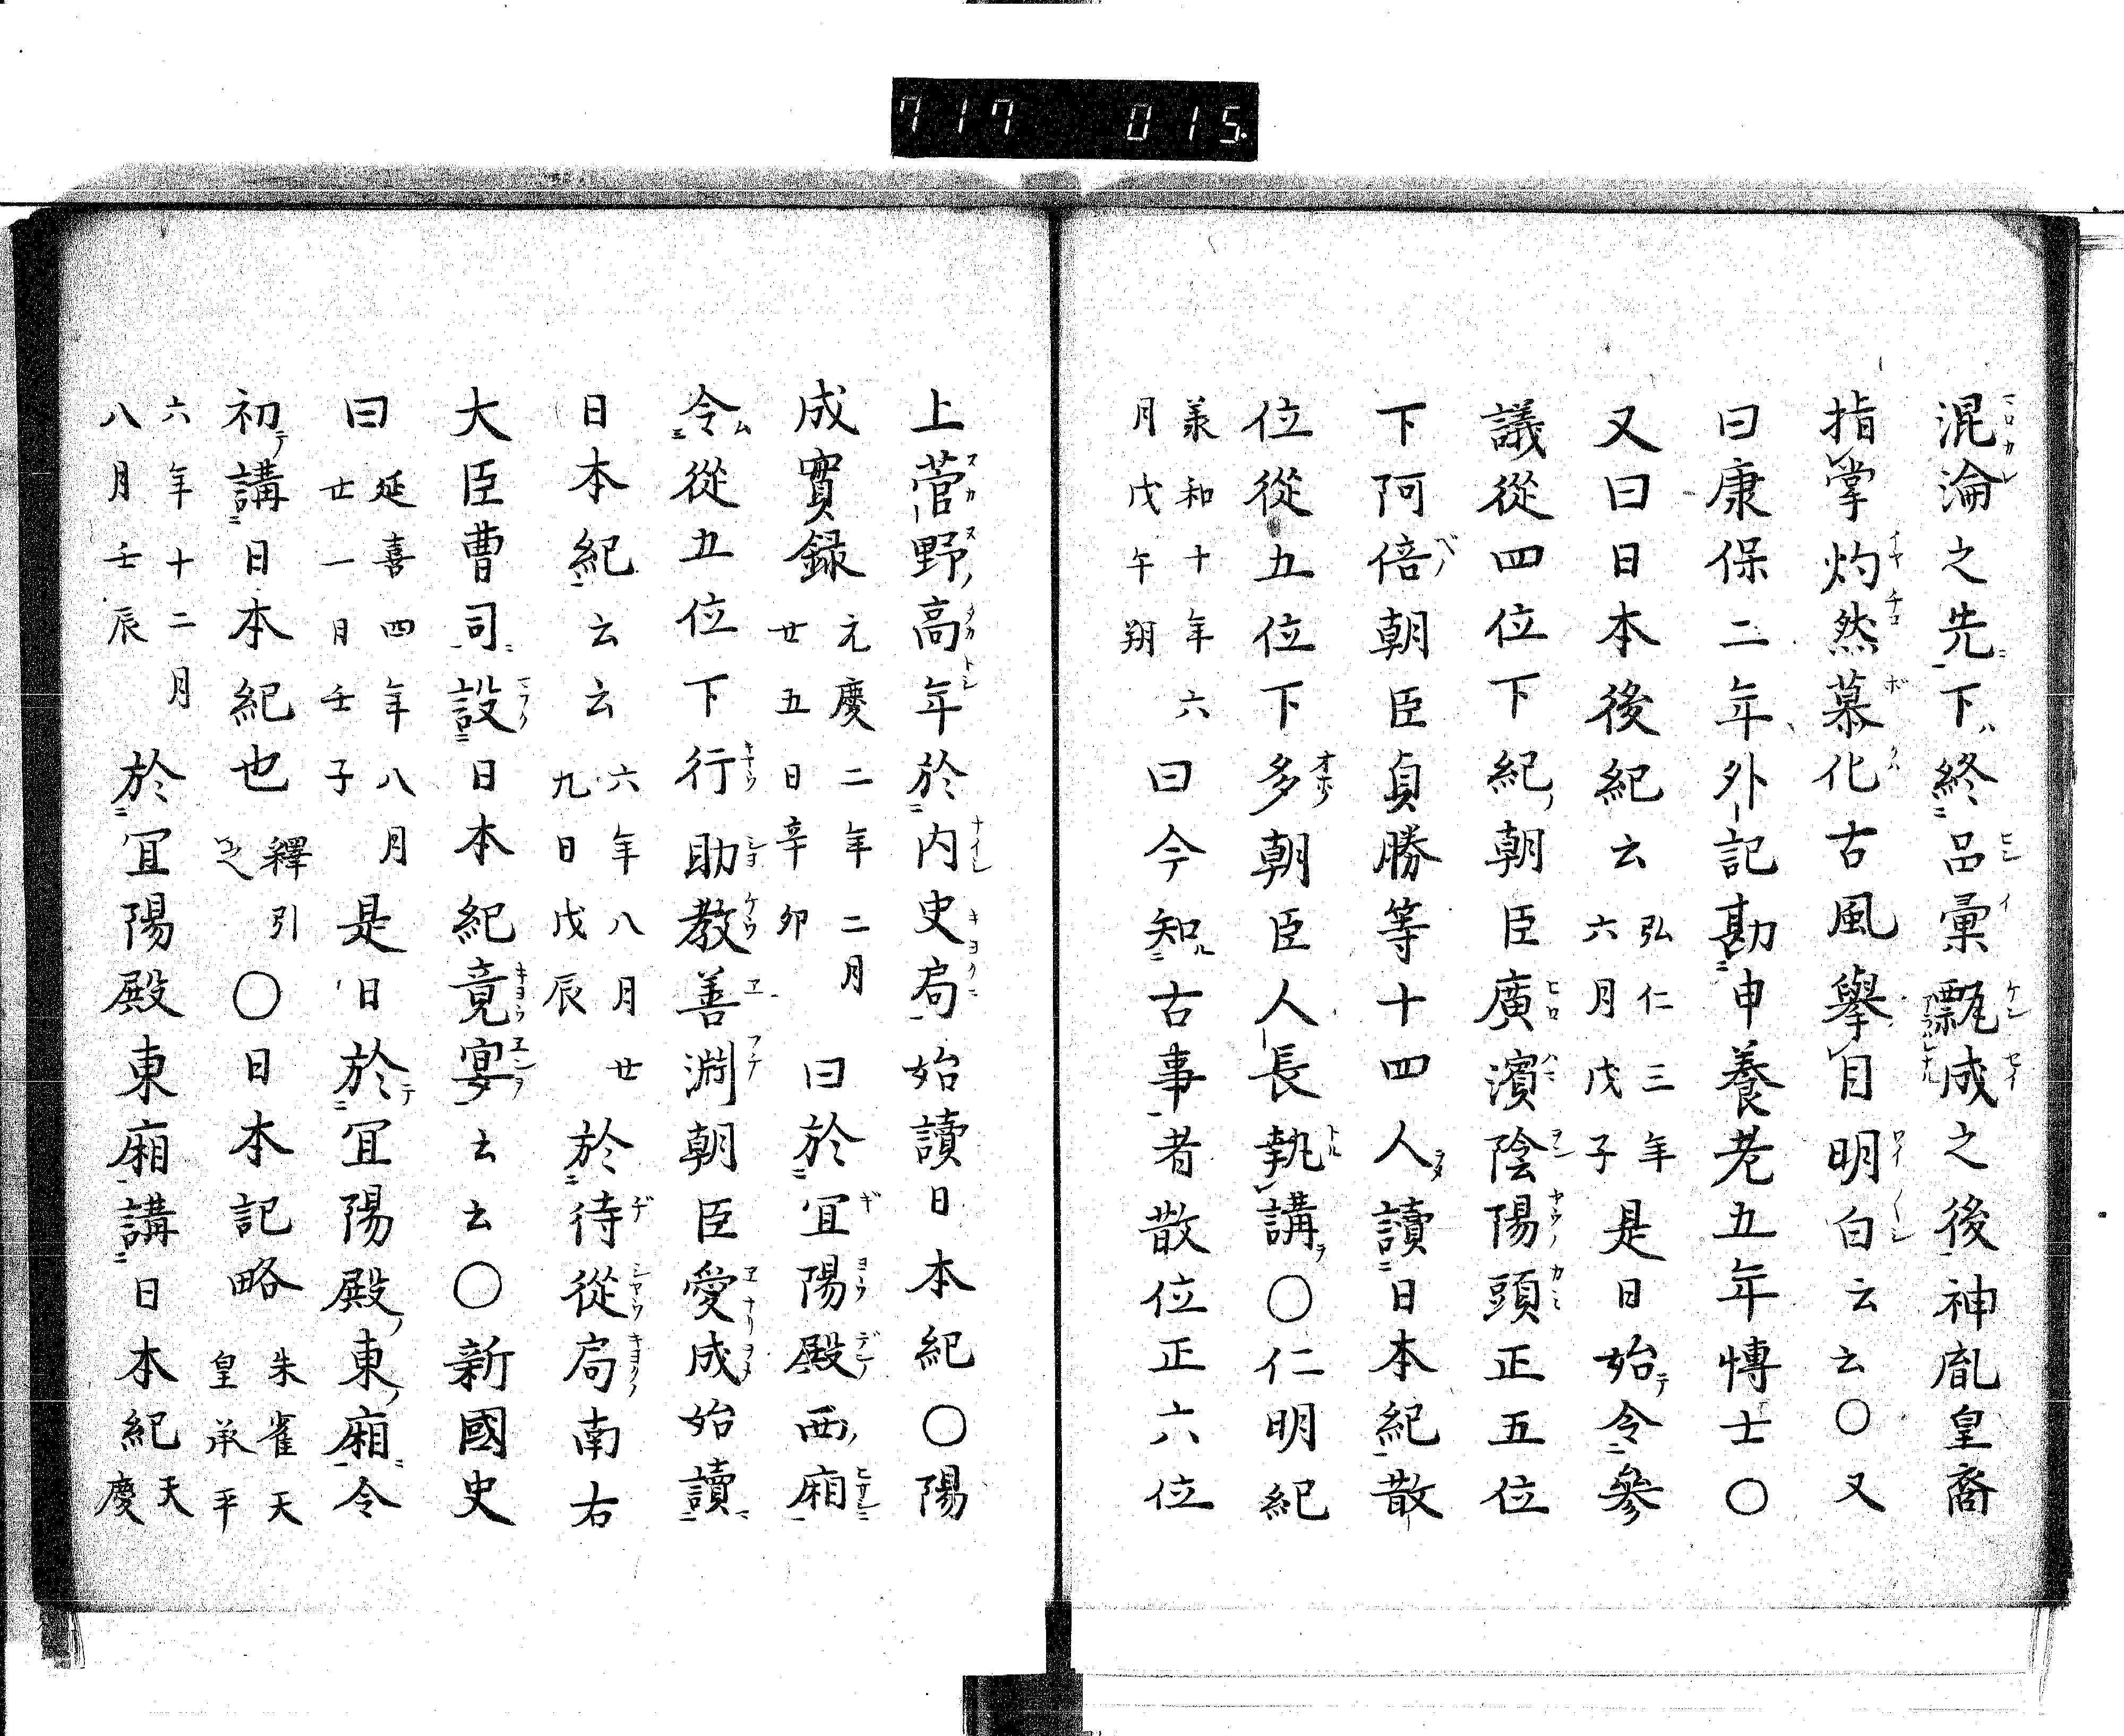 717 015.
混淪之先下終品彙甄成之後神胤皇裔
指掌灼然慕化古風擧目明白云云〇又
曰康保二年外記勘申養老五年博士〇
又曰日本後紀云弘仁三年六月戊子是日始令參
議從四位下紀朝臣廣濱陰陽頭正五位
下阿倍朝臣貞勝等十四人讀日本紀散
位從五位下多朝臣人長執講〇仁明紀
羕和十年六月戊午朔曰今知古事者散位正六位
上菅野高年於内史局始讀日本紀〇陽
成實録元慶二年二月廿五日辛卯曰於冝陽殿西廂
令從五位下行助教善淵朝臣愛成始讀
日本紀云云六年八月廿九日戊辰於待從局南右
大臣曹司設日本紀竟宴云云〇新國史
曰延喜四年八月廿一日壬子是日於冝陽殿東廂令
初講日本紀也釋引〇日本記略朱雀天皇承平
六年十二月八日壬辰於冝陽殿東廂講日本紀天慶